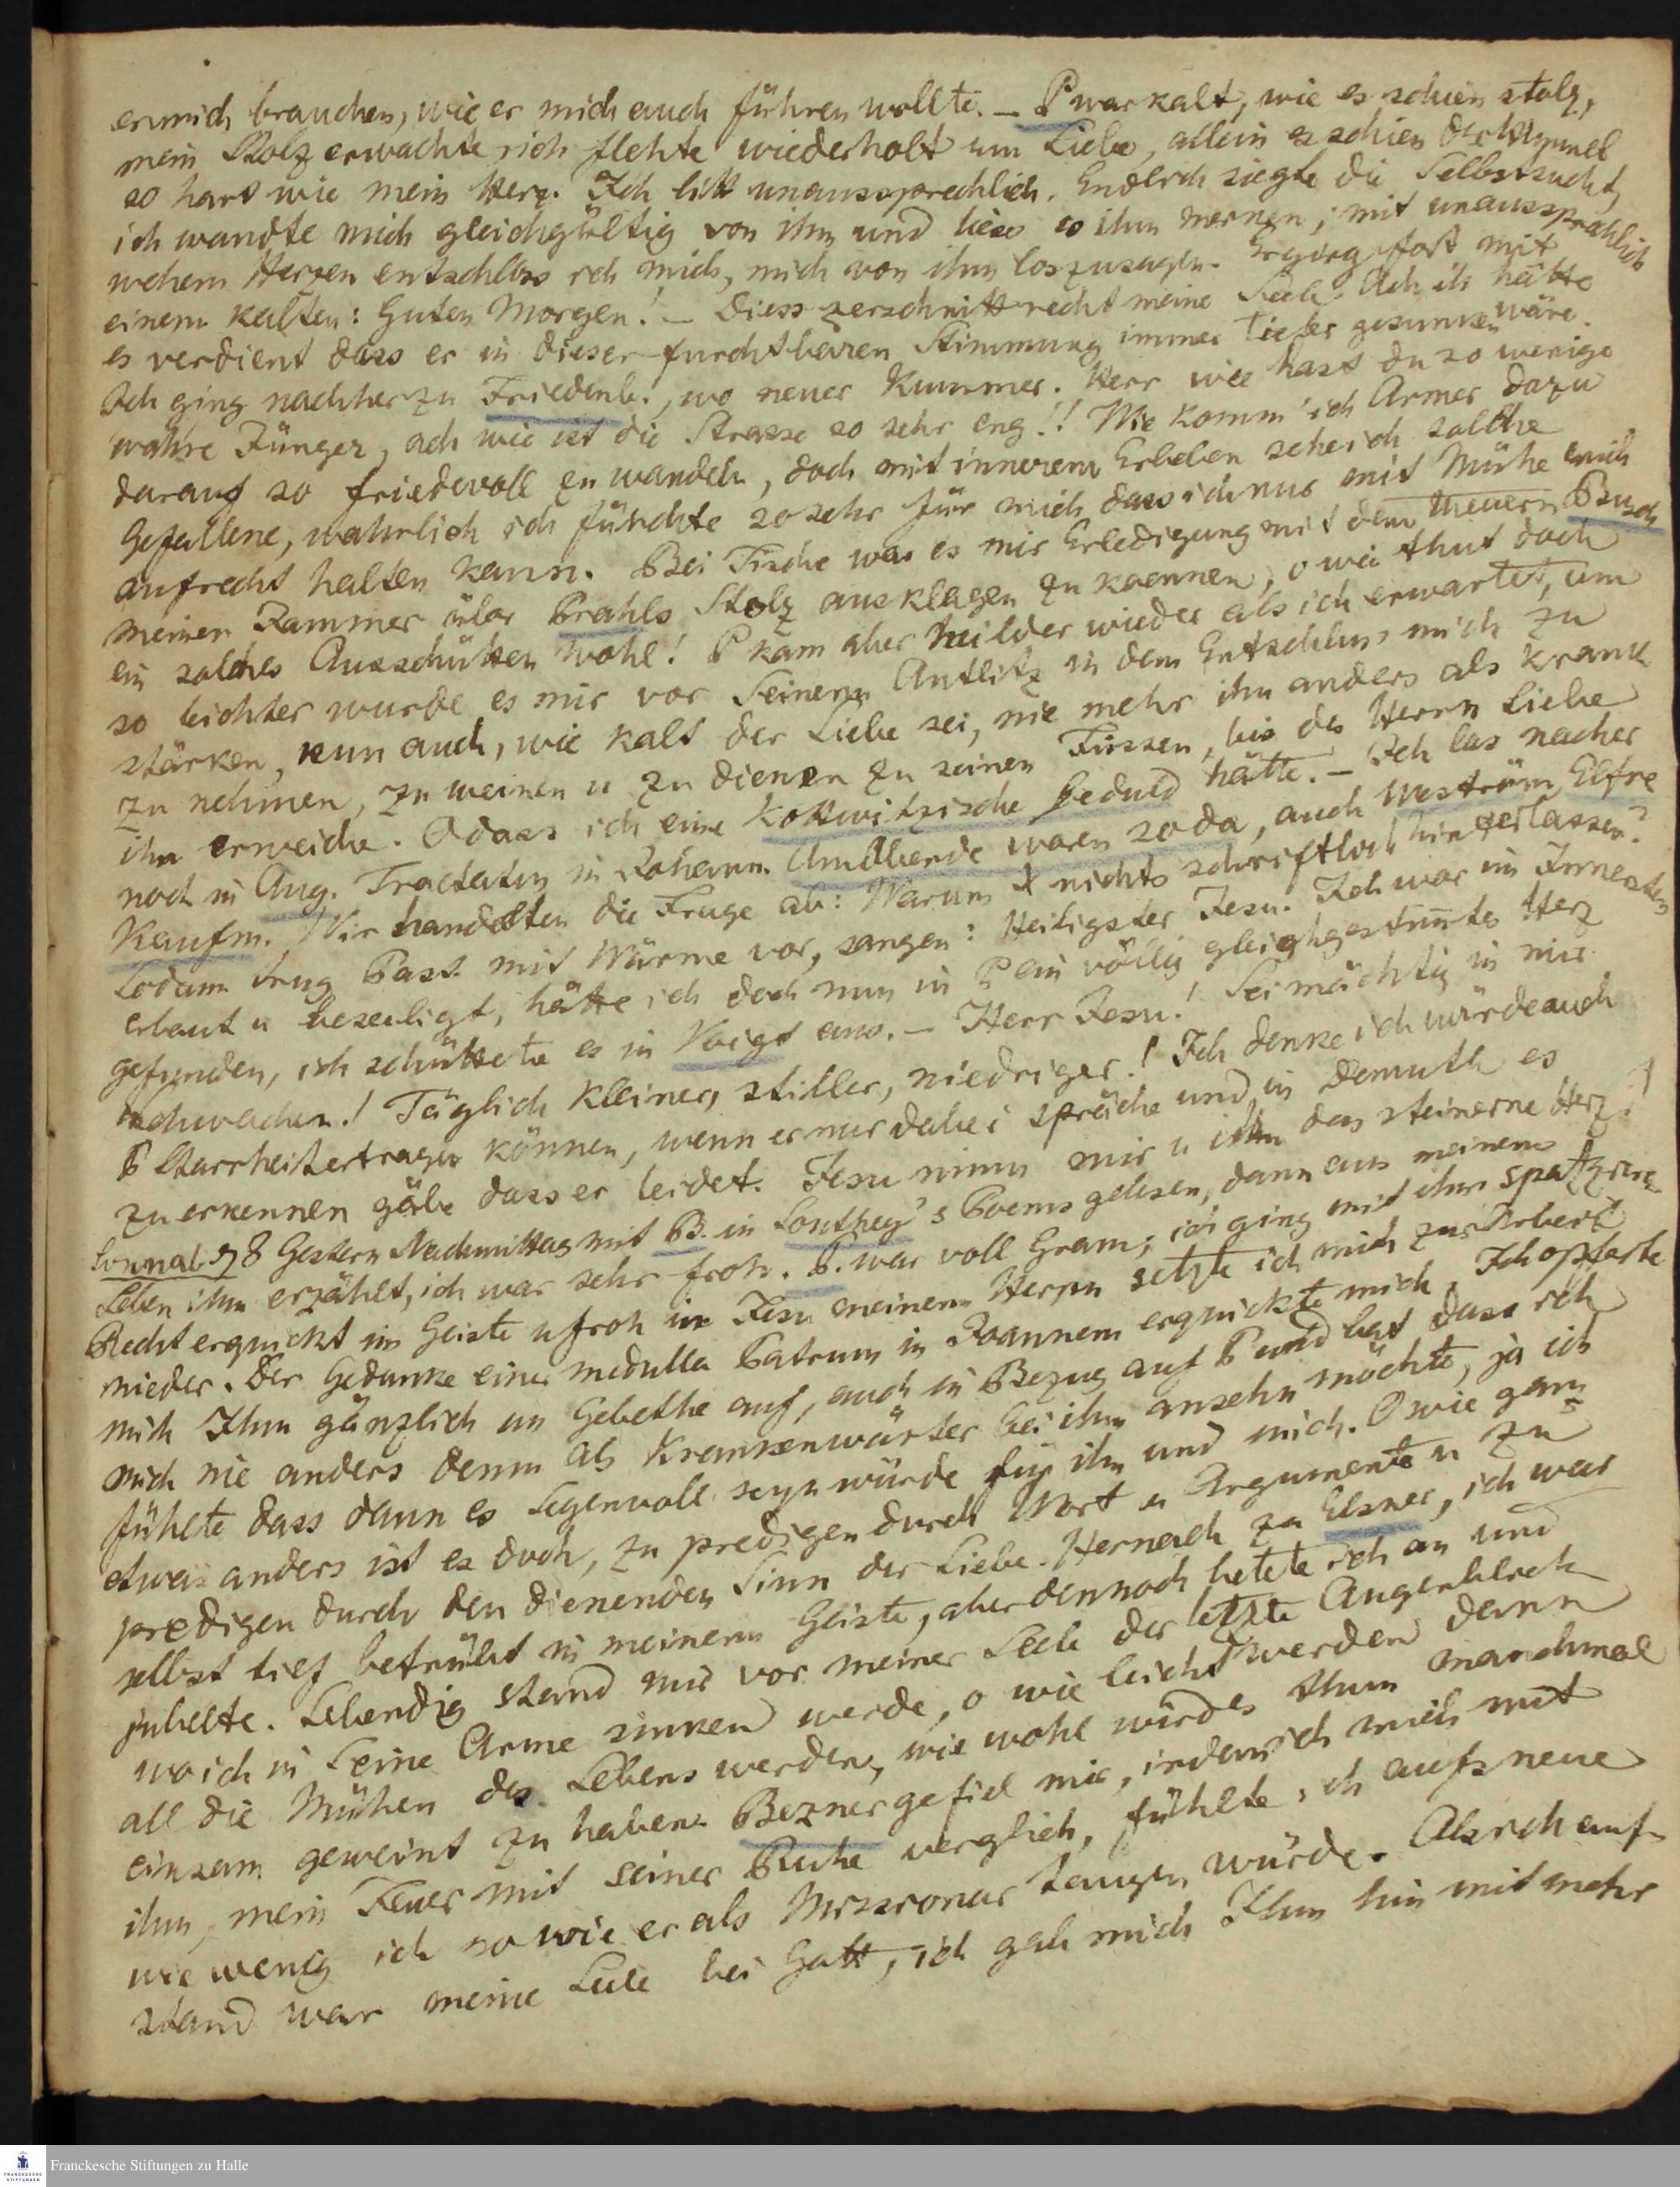 er mich brauchen, wie er mich auch führen wollte. – P war kalt, wie es schien stolz,
mein Stolz erwachte, ich flehte wiederholt um Liebe, allein es schien der Himmel
so hart wie mein Herz. Ich litt unaussprechlich. Endlich siegte die Selbstsucht,
ich wandte mich gleichgültig von ihm und liess es ihm merken; mit unaussprechlich
wehem Herzen entschloss ich mich, mich von ihm loszusagen. Er ging fort mit
einem kalten: Guten Morgen! – Diess zerschnitt recht meine Seele. Ach ich hätte
es verdient dass er in dieser furchtbaren Stimmung immer tiefer gesunken wäre.
Ich ging nachher zu Friedenb., wo neuer Kummer. Herr wie hast du so wenige
wahre Jünger, ach wie ist die Strasse so sehr eng!! Wie komm' ich Armer dazu
darauf so friedevoll zu wandeln, doch mit innerem Erbeben sehe ich solche
Gefallene, wahrlich ich fürchte so sehr für mich dass ich nur mit Mühe mich
aufrecht halten kann. Bei Tische war es mir Erledigung mit dem theuern Busch
meinen Jammer über Prahls Stolz ausklagen zu koennen, o wie thut doch
ein solches Ausschütten wohl! P kam aber milder wieder als ich erwartet, um
so leichter wurde es mir vor Seinem Antlitz in dem Entschluss mich zu
stärken, nun auch, wie kalt der Liebe sei, nie mehr ihn anders als krank
zu nehmen, zu weinen u zu dienen zu seinen Füssen, bis des Herrn Liebe
ihn erweiche. O dass ich eine Kottwitzische Geduld hätte. – Ich las nacher
noch in Aug. Tractatus in Johann. Am Abende waren so da, auch Weström, Elfre
Kaufm. Wir handelten die Frage ab: Warum X nichts schriftlich hinterlassen?
Sodann trug Past. mit Wärme vor, sangen: Heiligster Jesu. Ich war im Innersten
erbaut u beseeligt, hätte ich doch nun in P ein völlig gleichgestimtes Herz
gefunden, ich schüttete es in Voigt aus. – Herr Jesu! Sei mächtig in mir
schwachen! Täglich kleiner, stiller, niedriger! Ich denke ich würde auch
P Starrheit ertragen können, wenn er nur dabei spräche und in Demuth es
zu erkennen gäbe dass er leidet. Jesu nimm mir u ihm das steinerne Herz!
Sonnab. 8 Gestern Nachmittag mit B. in Southey's Poems gelesen, dann aus meinem
Leben ihm erzählt, ich war sehr froh. P. war voll Gram; ich ging mit ihm spatziren
Recht erquickt im Geiste u froh in Jesu meinem Herrn setzte ich mich zur Arbeit
nieder. Der Gedanke einer medulla Patrum in Joannem erquickte mich. Ich opferte
mich Ihm gänzlich im Gebethe auf, auch in Bezug auf P und bat dass ich
mich nie anders denn als Krankenwärter bei ihm ansehn möchte, ja ich
fühlte dass dann es segenvoll seyn würde für ihn und mich. O wie ganz
etwas anders ist es doch, zu predigen durch Wort u Argumente u zu
predigen durch den dienenden Sinn der Liebe. Hernach zu Elsner, ich war
selbst tief betrübt in meinem Geiste, aber dennoch betete ich an und
jubelte. Lebendig stand mir vor meiner Seele der letzte Augenblick
wo ich in Seine Arme sinken werde, o wie leicht werden denn
all die Mühen des Lebens werden, wie wohl wird es thun manchmal
einsam geweint zu haben. Bezner gefiel mir, indem ich mich mit
ihm, mein Feuer mit seiner Ruhe verglich, fühlte ich aufs neue
wie wenig ich so wie er als Missionar taugen würde. Als ich auf-
stand war meine Seele bei Gott, ich gab mich Ihm hin mit mehr
Franckesche Stiftungen zu Halle